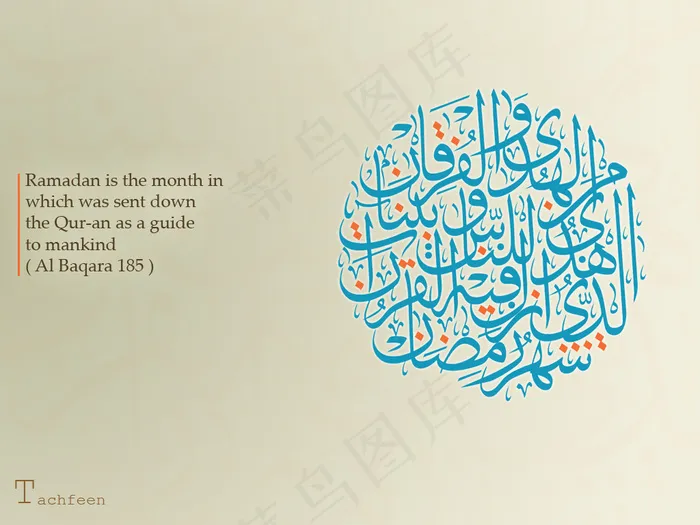 Ramadan is the month in
which was sent down
the Qur-an as a guide
to mankind
( Al Baqara 185 )
شهر رمضان
الذي أنزل فيه القرآن
هدى للناس وبينات
من الهدى والفرقان
Tachfeen
菜鸟图库
菜鸟图库
菜鸟图库